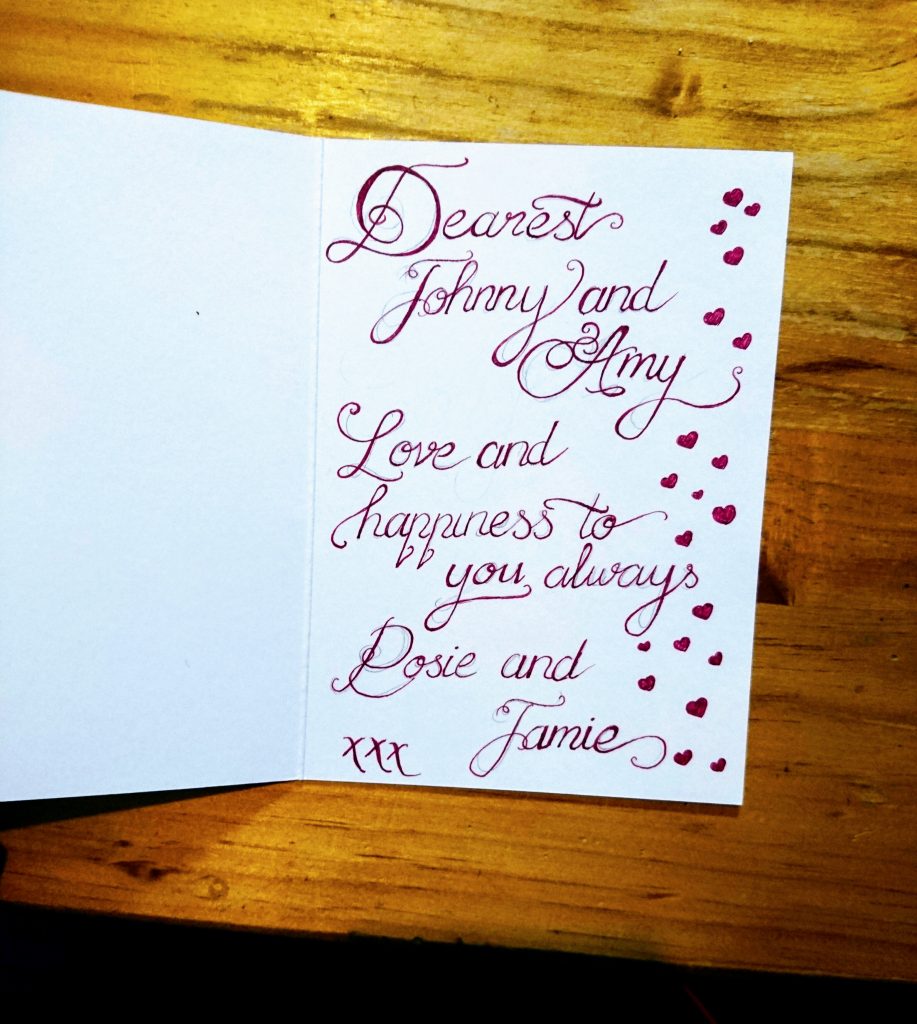 Dearest
Johnny and
Amy
Love and
happiness to
you always
Rosie and
Jamie
xxx